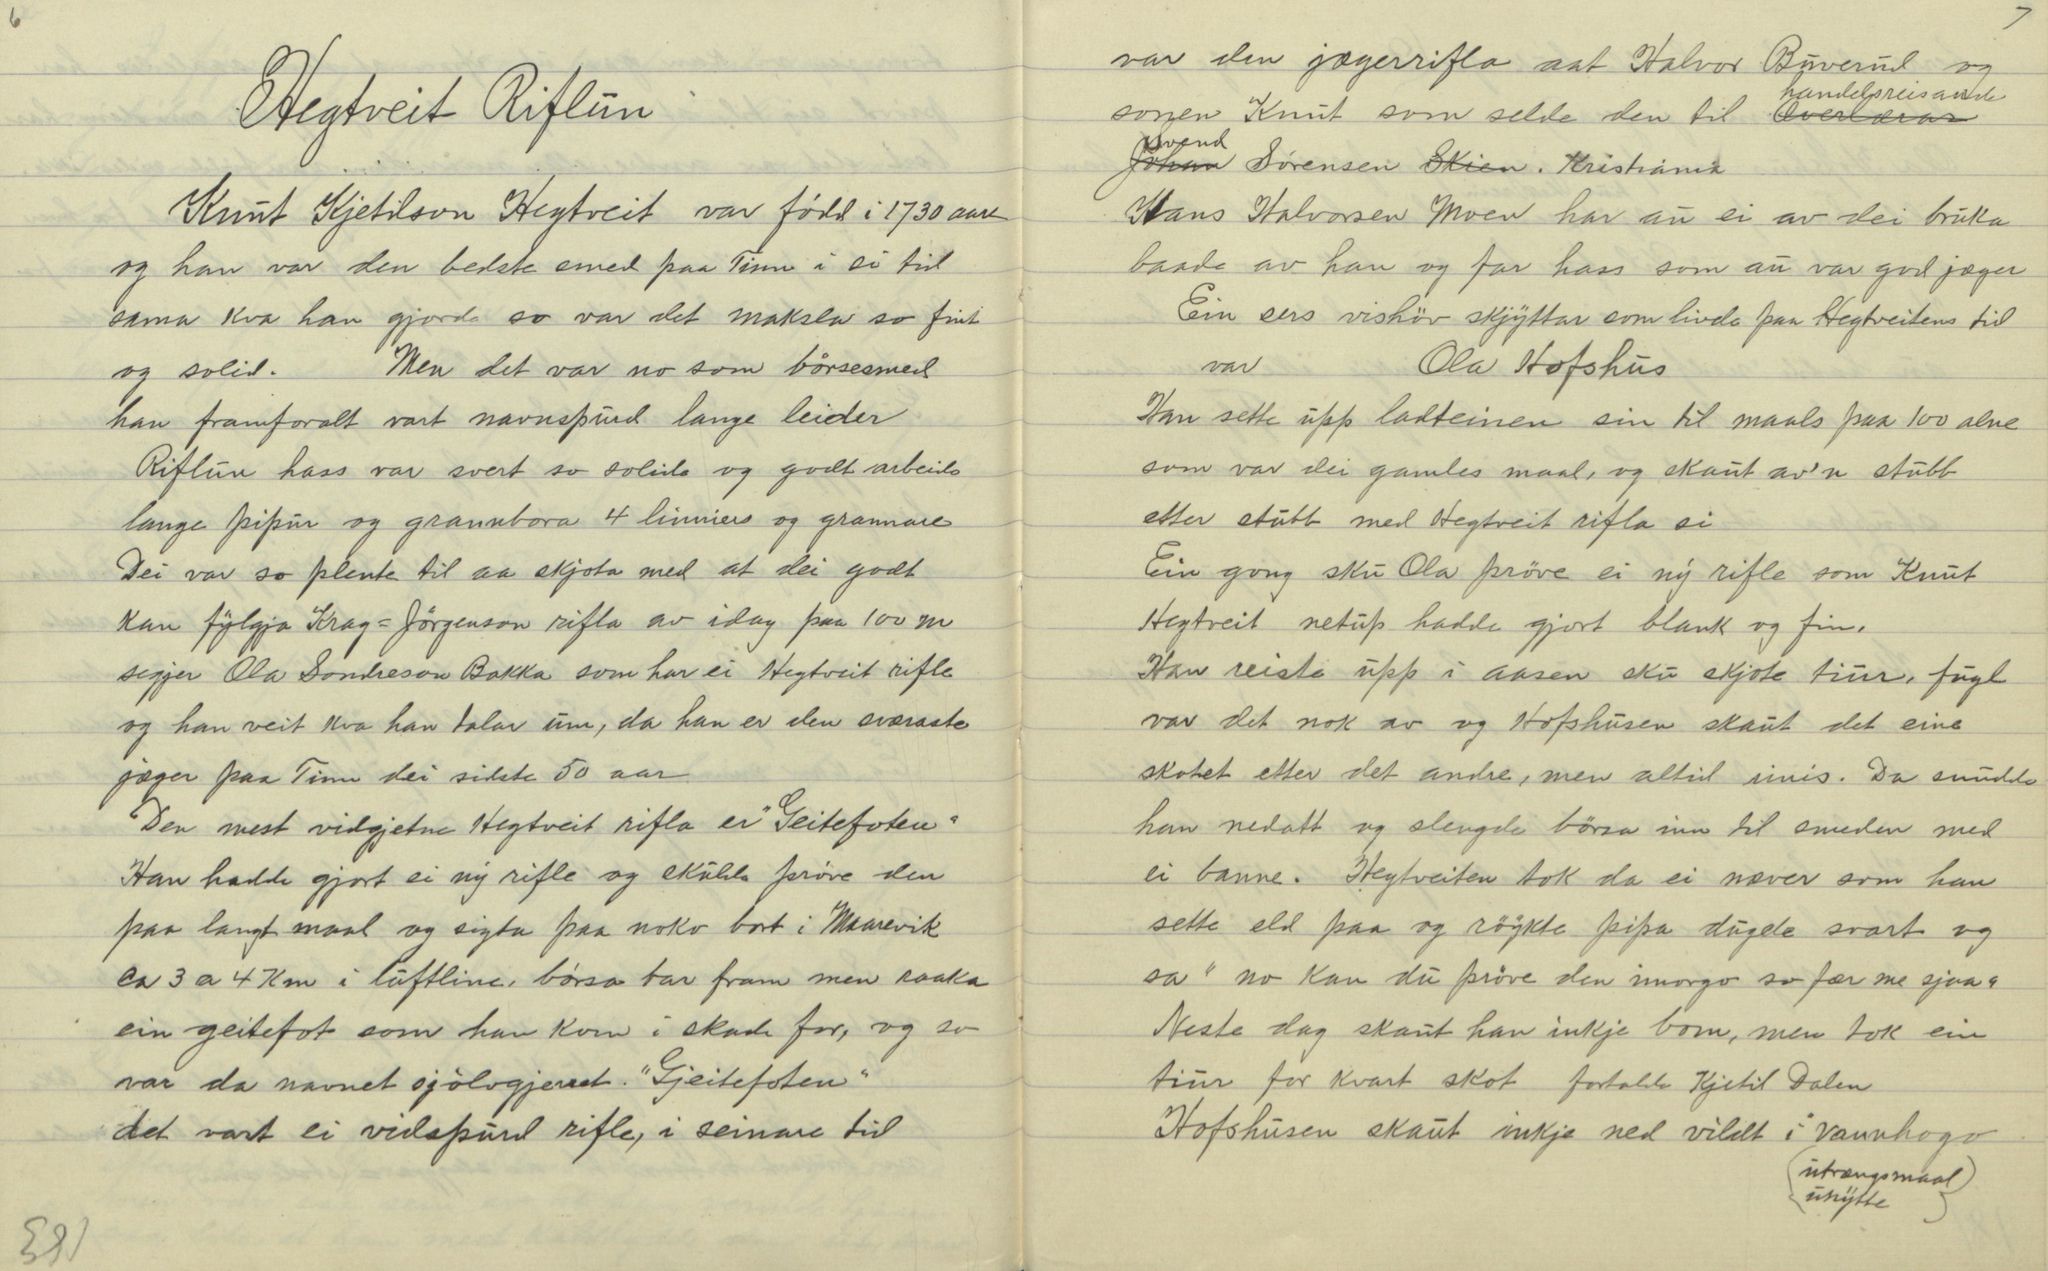 6
Hegtveit Riflun
Knut Kjetilson Hegtveit var född i 1730 aare
og han var den bedste smed paa Tinn i si tid
sama kva han gjorde so var det maksla so fint
og solid. Men det var no som börsesmed
han framforalt vart navnspurd lange leider
Riflun hass var svert so solide og godt arbeide
lange pipur og grannbora 4 linniers og grannare
Dei var so plente til aa skjota med at dei godt
kan fylgja Krag=Jörgenson rifla av idag paa 100 m
segjer Ola Sondreson Bakka som har ei Hegtveit rifle
og han veit kva han talar um, da han er den sværaste
jæger paa Tinn dei sidste 50 aar
Den mest vidgjetne Hegtveit rifla er "Geitefoten"
Han hadde gjort ei ny rifle og skulde pröve den
paa langt maal og sigta paa noko bort i Maarevik
ca 3 a 4 Km i luftline, börsa bar fram men raaka
ein geitefot som han kom i skade for, og so
var da navnet sjölvgjevet. "Gjeitefoten"
det vart ei vidspurd rifle, i seinare tid
183
7
var den jægerrifla aat Halvor Buverud og
handelsreisande
sonen Knut som selde den til Overlærar
Svend
Johan Sörensen Skien. Kristiania
Hans Halvorsen Moen har au ei av dei bruka
baade av han og far hass som au var god jæger
Ein sers vishöv skjyttar som livde paa Hegtveitens tid
var Ola Hofshus
Han sette upp ladteinen sin til maals paa 100 alne
som var dei gamles maal, og skaut av'n stubb
etter stubb med Hegtveit rifla si
Ein gong sku Ola pröve ei ny rifle som Knut
Hegtveit netup hadde gjort blank og fin.
Han reiste upp i aasen sku skjote tiur, fugl
var det nok av og Hofshusen skaut det eine
skotet etter det andre, men altid imis. Da snudde
han nedatt og slengde börsa inn til smeden med
ei banne. Hegtveiten tok da ei næver som han
sette eld paa og röykte pipa dugele svart og
sa "no kan du pröve den imorgo so fær me sjaa"
Neste dag skaut han inkje bom, men tok ein
tiur for kvart skot fortalde Kjetil Dalen
Hofshusen skaut inkje ned vildt i vannhogo
(utrængsmaal
unytte)